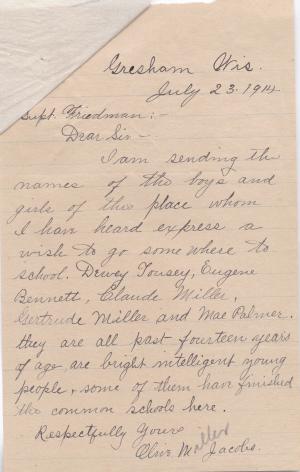 Gresham Wis.
July 23. 1914
Supt. Friedman:-
Dear Sir-
I am sending the
names of the boys and
girls of this place whom
I han heard express a
wish to go some where to
school. Dewey Tousey, Eugene
Bennett, Claude Miller,
Gertrude Miller and Mae Palmer.
they are all past fourteen years
of age, are bright intelligent young
people, some of them have finished
the common schools here.
Respectfully Yours
Olive Miller Jacobs.